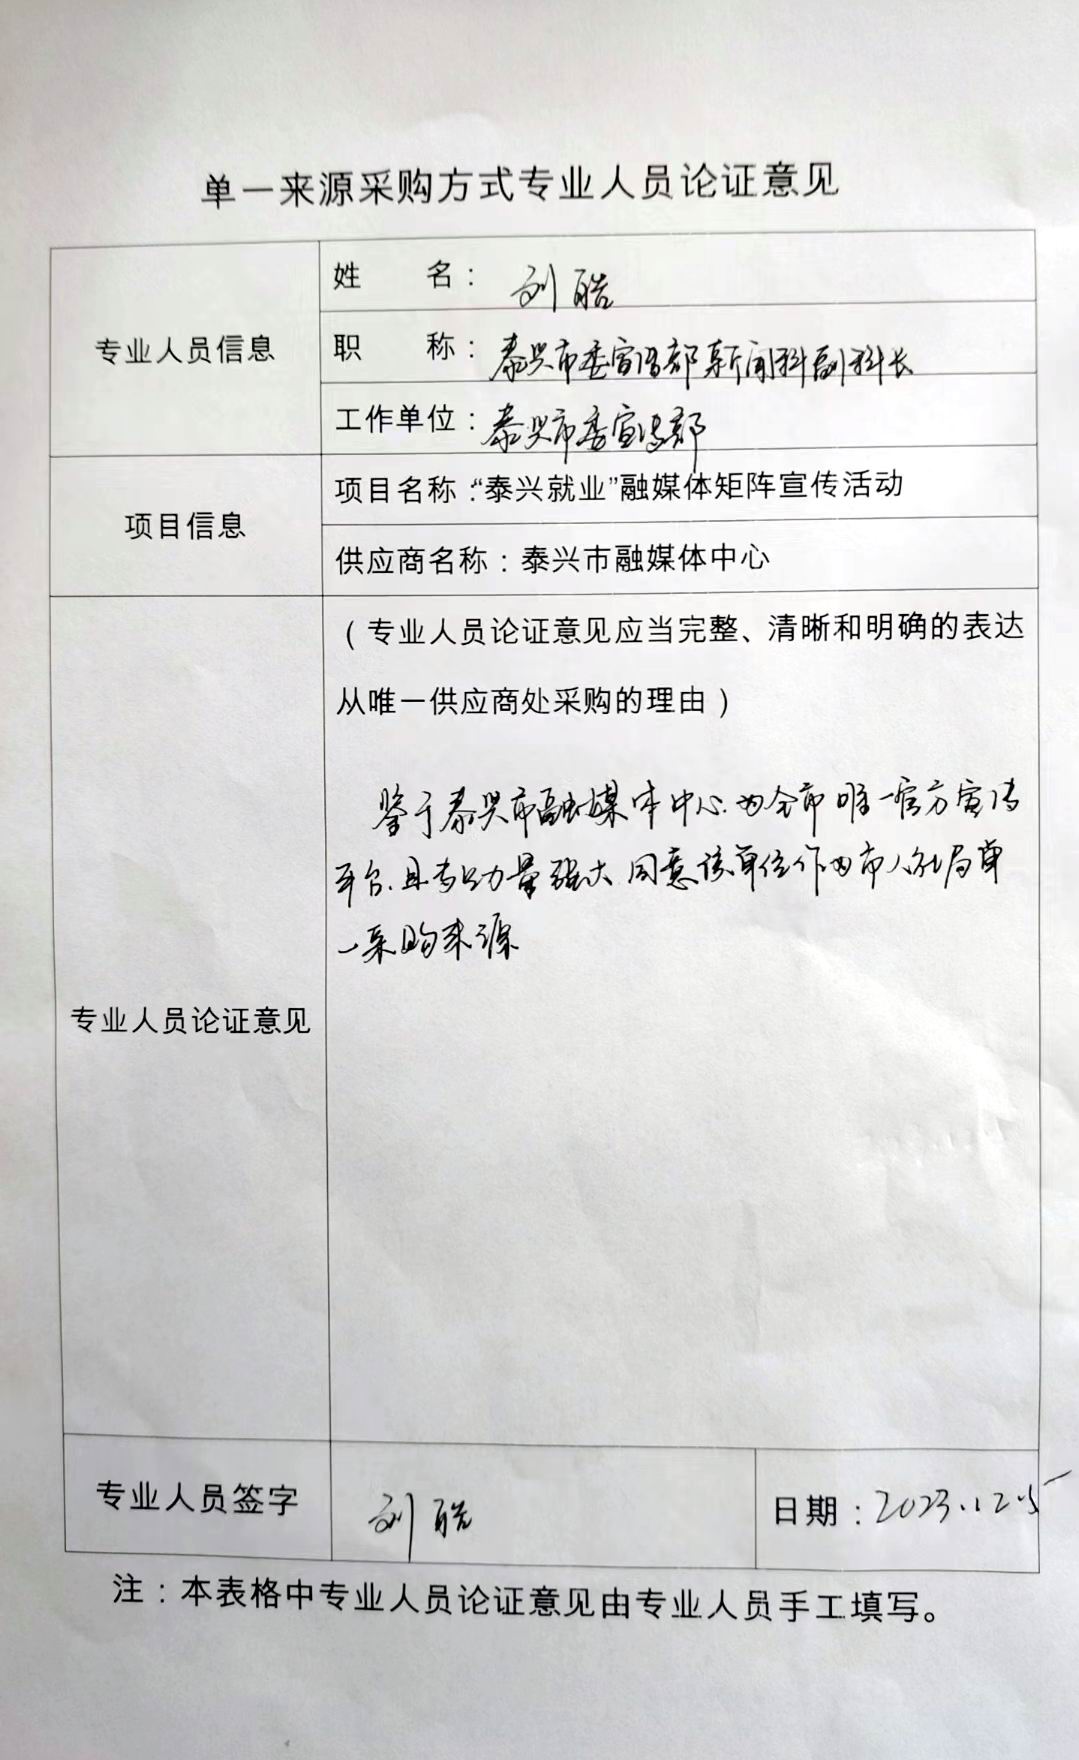 单一来源采购方式专业人员论证意见
专业人员信息
姓 名：刘皓
职 称：泰兴市委宣传部新闻科副科长
工作单位：泰兴市委宣传部
项目信息
项目名称：“泰兴就业”融媒体矩阵宣传活动
供应商名称：泰兴市融媒体中心
专业人员论证意见
（专业人员论证意见应当完整、清晰和明确的表达
从唯一供应商处采购的理由）
鉴于泰兴市融媒体中心为全市唯一官方宣传
平台，且专业力量强大，同意该单位作为市人社局单
一采购来源
专业人员签字
刘皓
日期：2023.12.5
注：本表格中专业人员论证意见由专业人员手工填写。